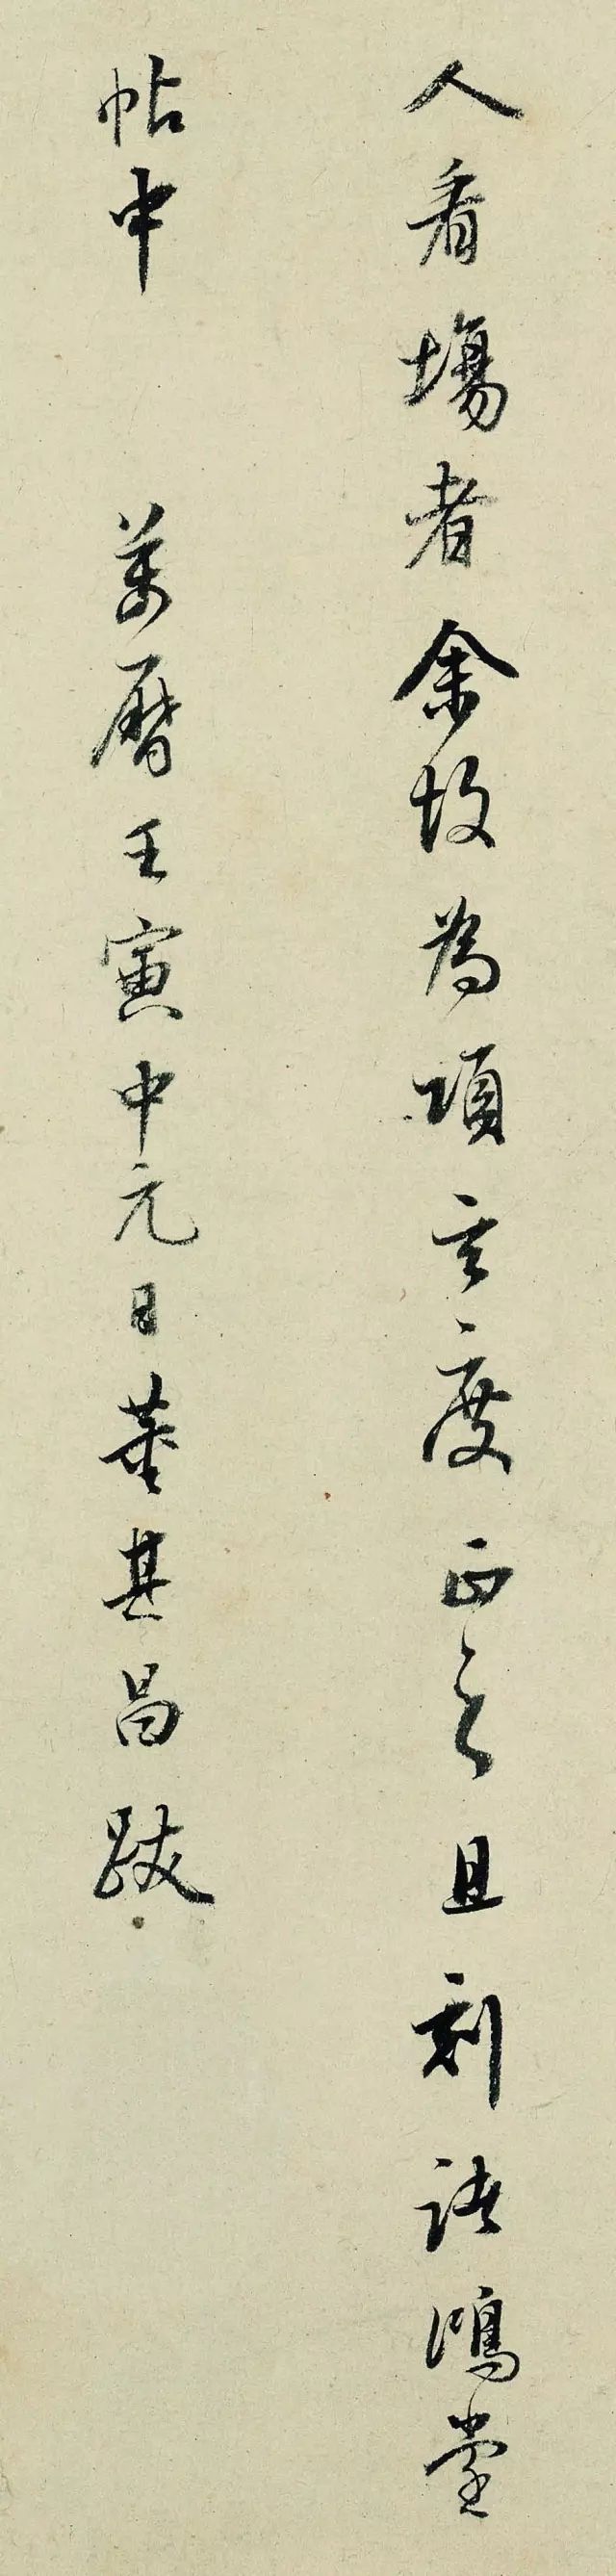 人看場者余故為項玄度正之且刻諸鴻堂
帖中 萬曆壬寅中元日董其昌跋